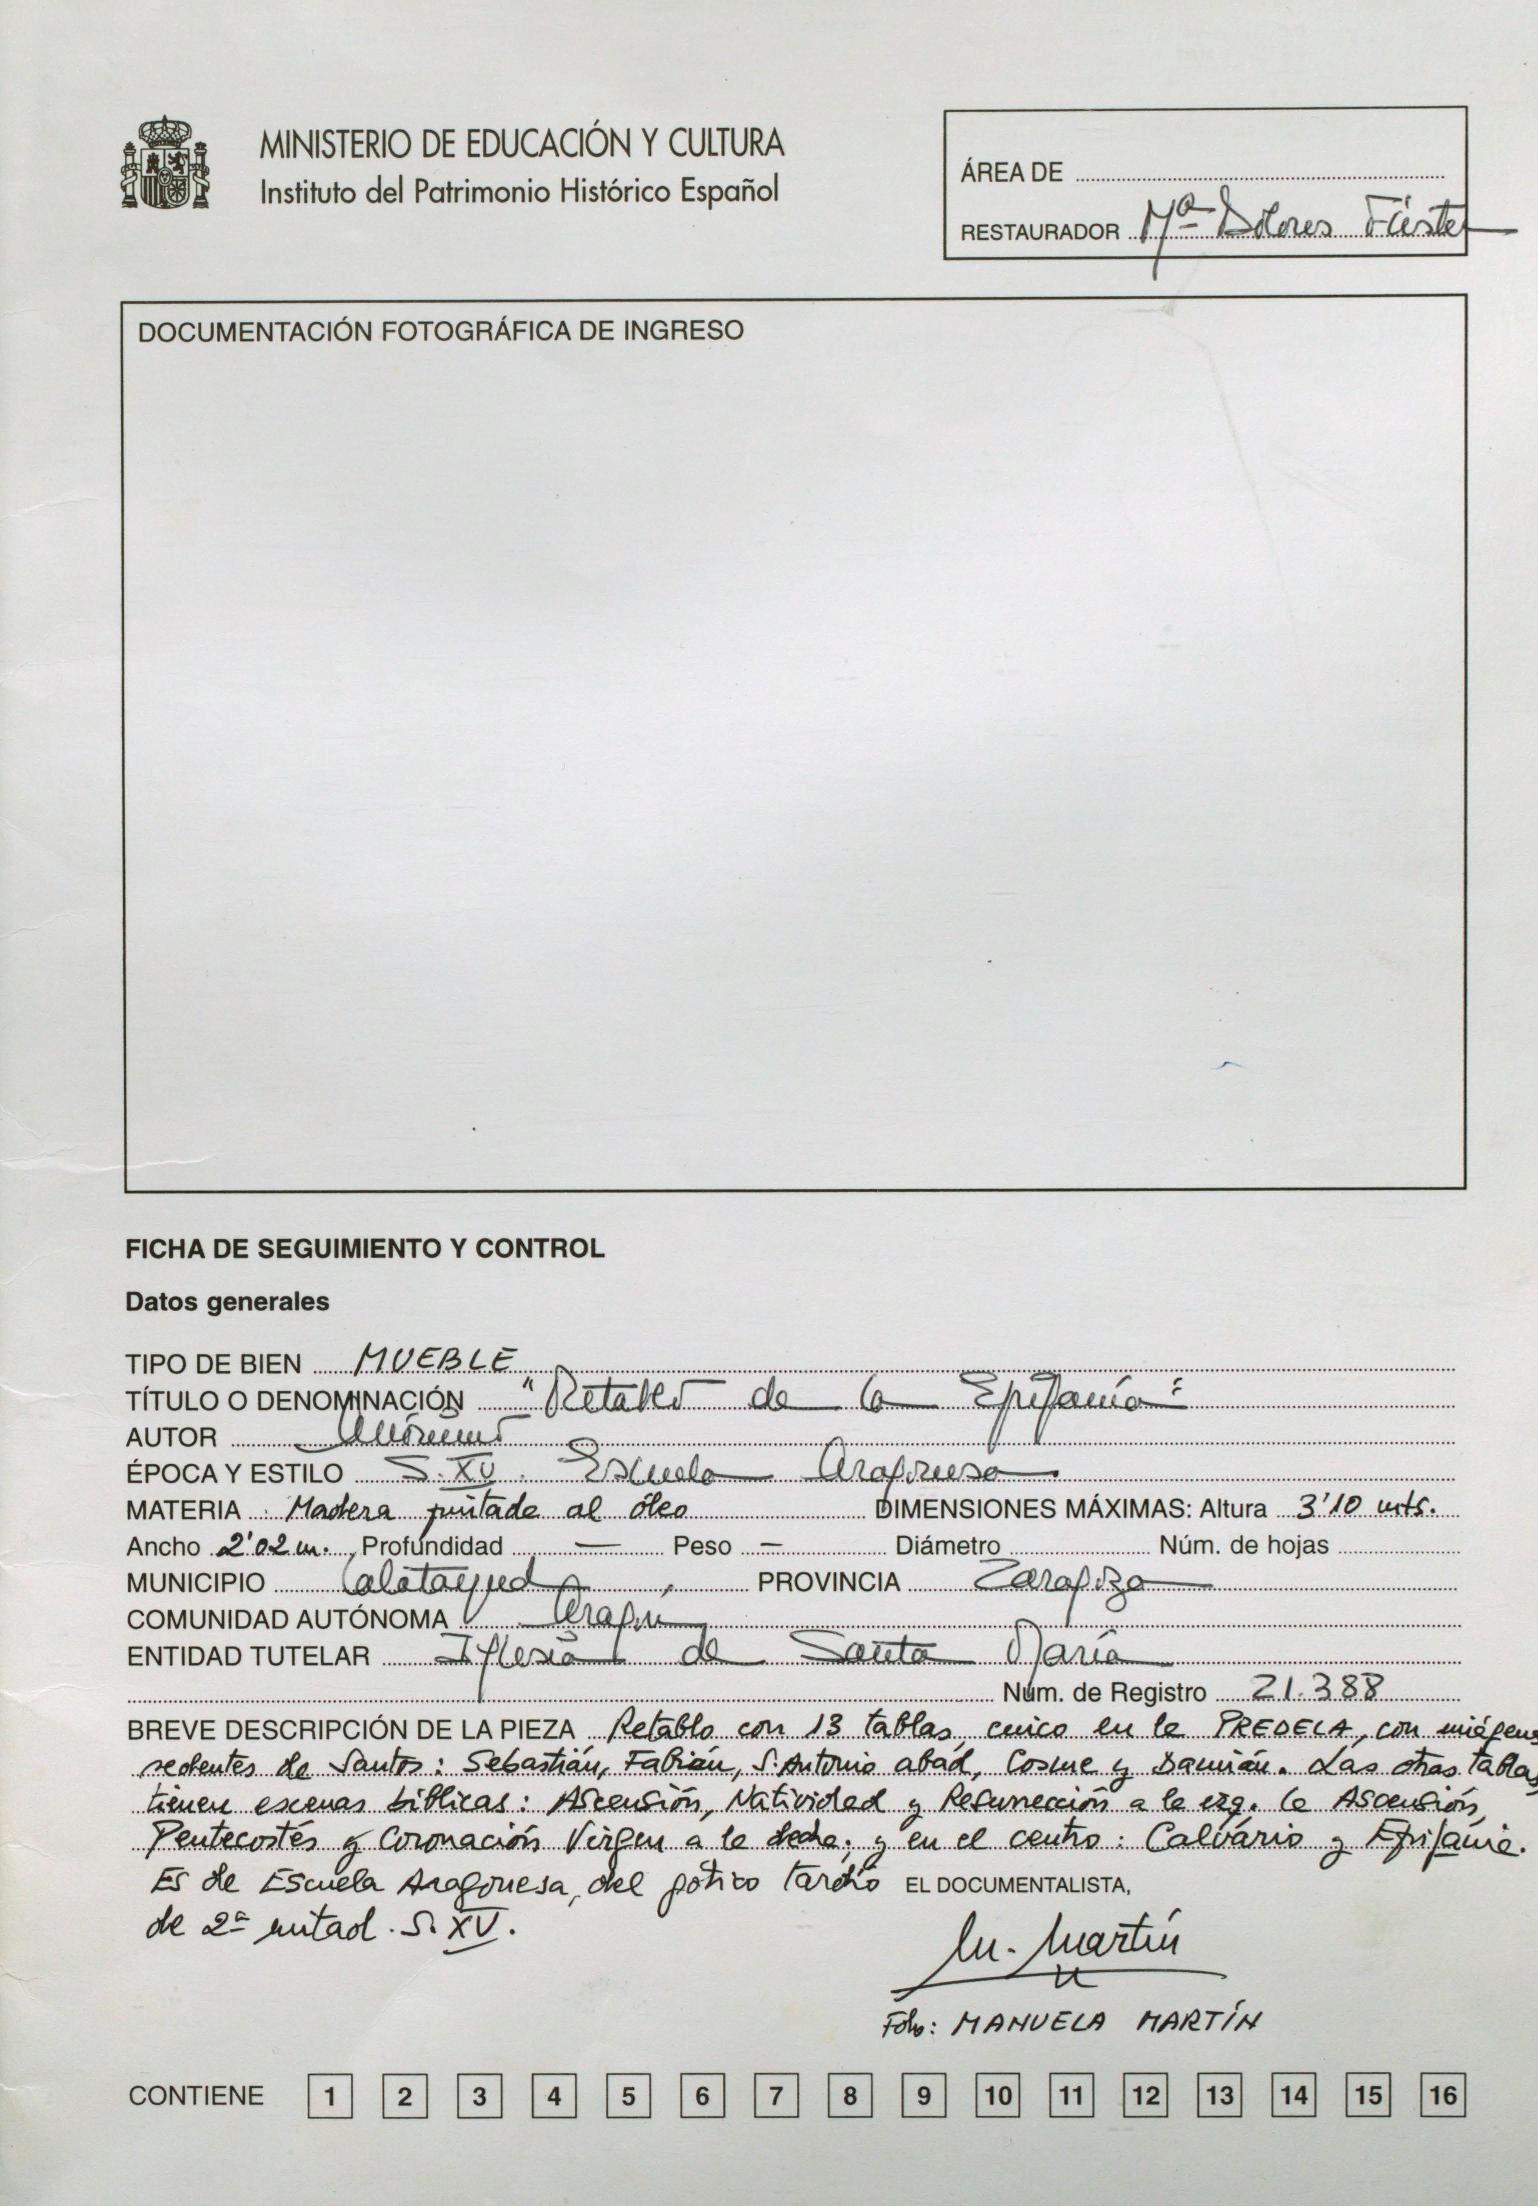 MINISTERIO DE EDUCACIÓN Y CULTURA
Instituto del Patrimonio Histórico Español
ÁREA DE
RESTAURADOR Mª Dolores Fúster
DOCUMENTACIÓN FOTOGRÁFICA DE INGRESO
FICHA DE SEGUIMIENTO Y CONTROL
Datos generales
TIPO DE BIEN MUEBLE
TÍTULO O DENOMINACIÓN "Retablo de la Epifanía"
AUTOR Anónimo
ÉPOCA Y ESTILO S. XV. Escuela Aragonesa.
MATERIA Madera pintada al óleo DIMENSIONES MÁXIMAS: Altura 3'10 mts.
Ancho 2'02 m. Profundidad — Peso — Diámetro Núm. de hojas
MUNICIPIO Calatayud PROVINCIA Zaragoza
COMUNIDAD AUTÓNOMA Aragón
ENTIDAD TUTELAR Iglesia de Santa María
Núm. de Registro 21.388
BREVE DESCRIPCIÓN DE LA PIEZA Retablo con 13 tablas, cinco en la PREDELA, con imágenes
sedentes de Santos: Sebastián, Fabián, S. Antonio abad, Cosme y Damián. Las otras tablas
tienen escenas bíblicas: Ascensión, Natividad y Resurrección a la izq. la Ascensión,
Pentecostés y Coronación Virgen a la decha. y en el centro: Calvário y Epifanía.
Es de Escuela Aragonesa, del gótico tardío EL DOCUMENTALISTA,
de 2ª mitad. S. XV.
M. Martín
Fdo: MANUELA MARTÍN
CONTIENE 1 2 3 4 5 6 7 8 9 10 11 12 13 14 15 16